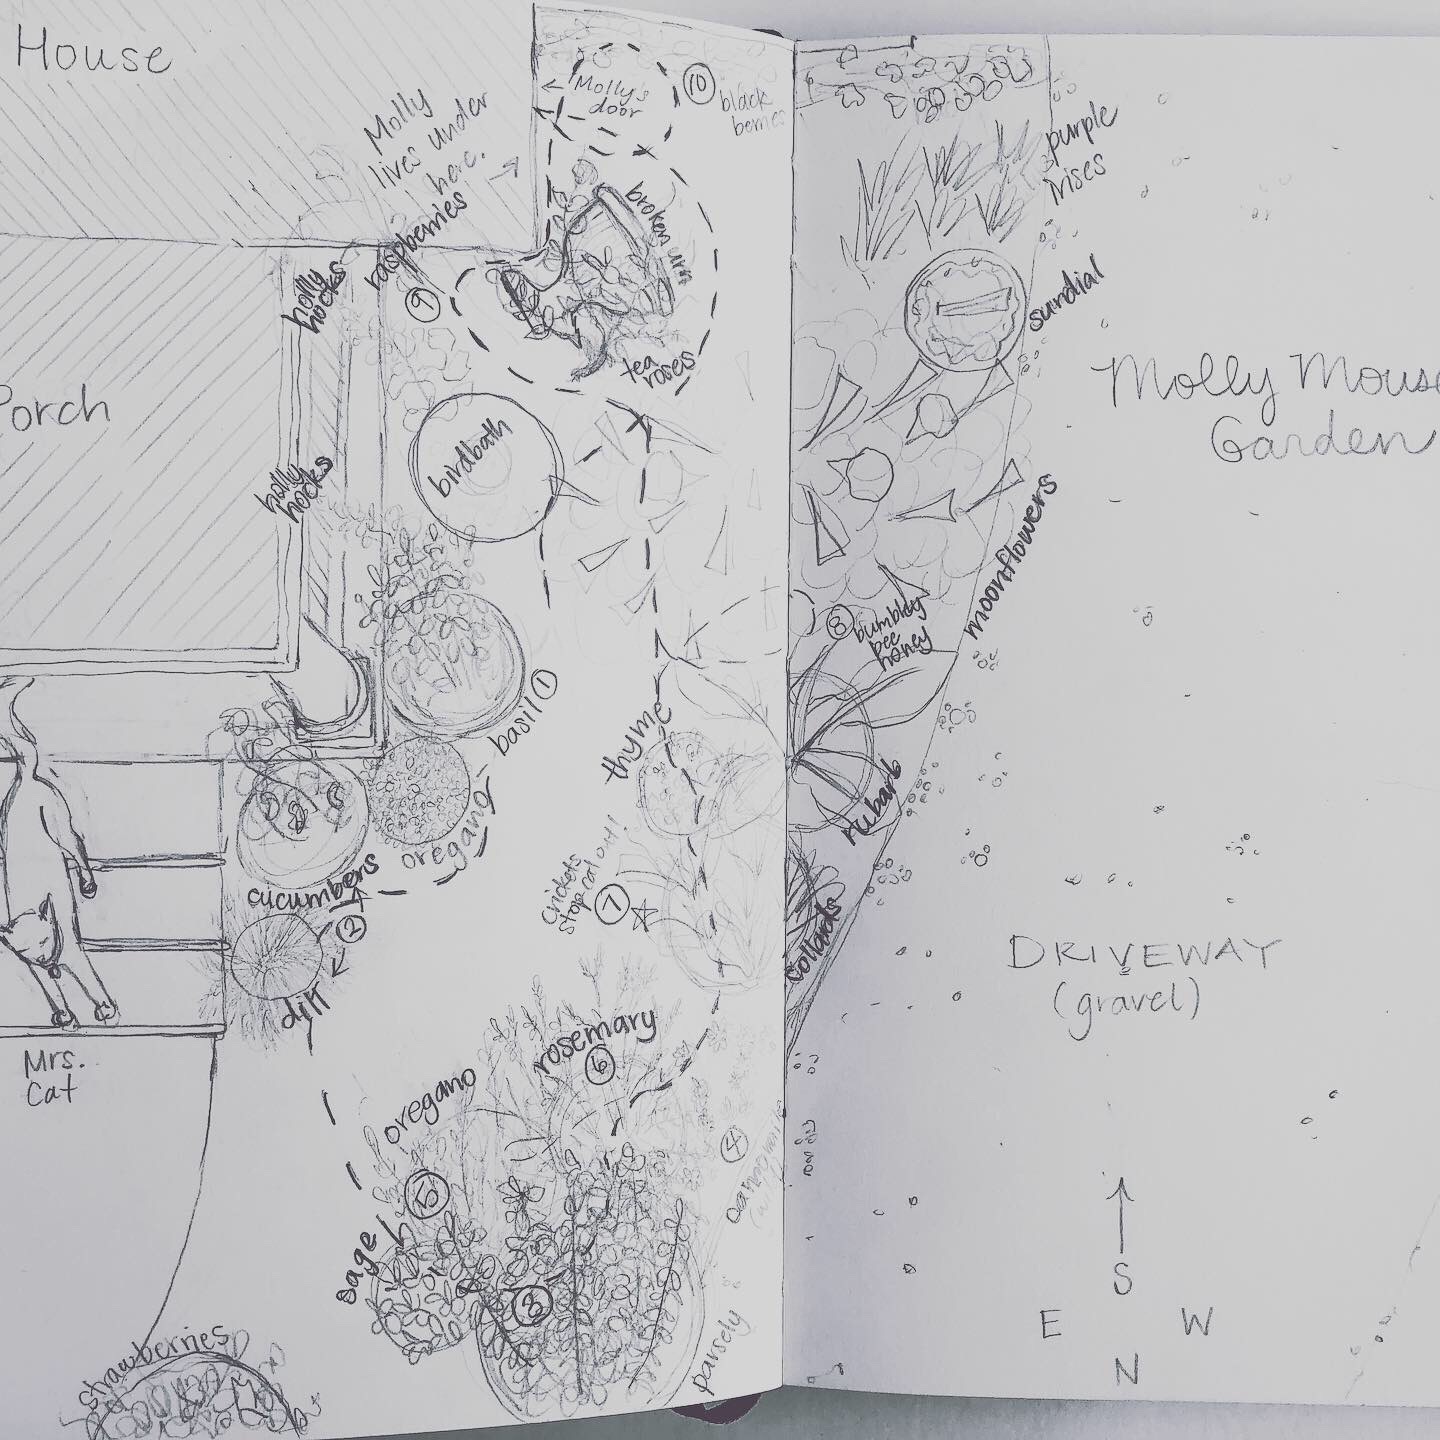 House
Molly
lives under
here.
← Molly's
door
⑩ black
berries
purple
irises
holly
hocks
raspberries
⑨
broken urn
tea
roses
sundial
Molly Mouse
Garden
Porch
birdbath
holly
hocks
moonflowers
⑧ bumbley
bee
honey
basil ①
thyme
rubarb
oregano
cucumbers
②
crickets
stop
⑦
collards
dill
DRIVEWAY
(gravel)
Mrs.
Cat
rosemary
⑥
oregano
④
⑤
sage
③
parsely
strawberries
S
E W
N